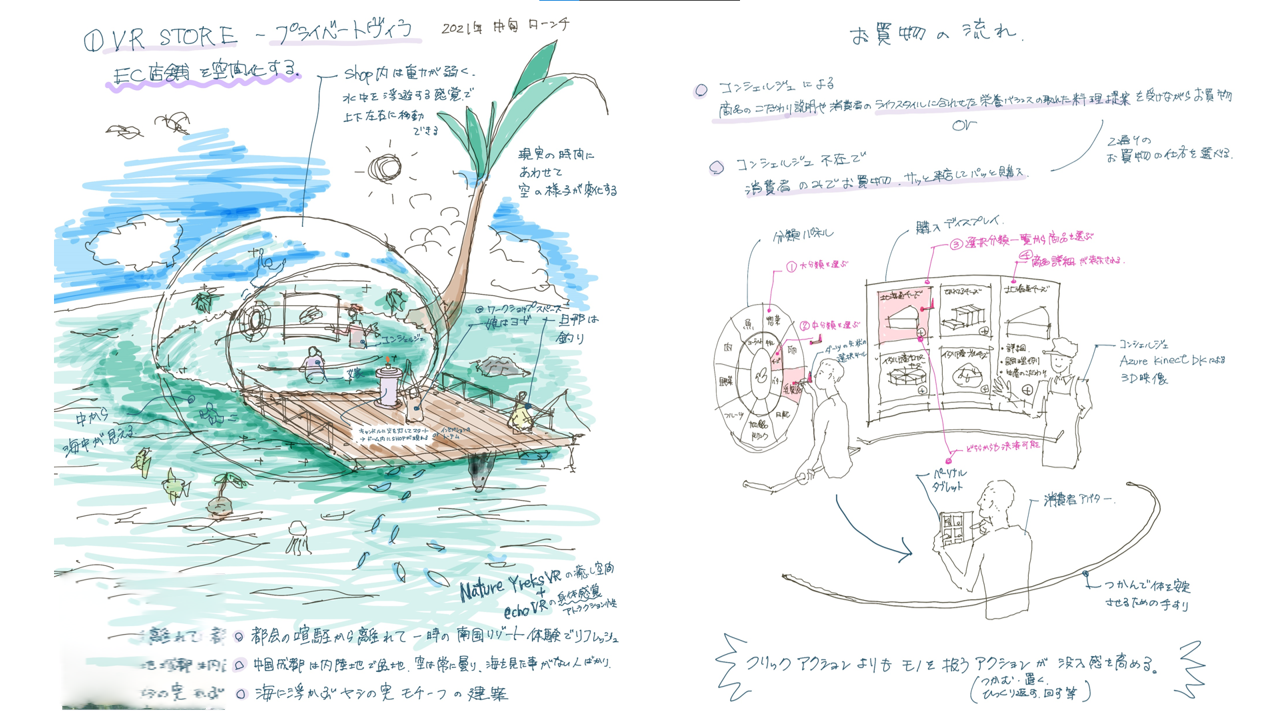 ① VR STORE - プライベートヴィラ
2021年 中旬 ローンチ
EC店舗を空間化する.
Shop内は重力が弱く.
水中を浮遊する感覚で
上下左右に移動
できる
現実の時間に
あわせて
空の様子が変化する
@ワークショップスペース
娘はヨガ
旦那は
釣り
コンシェルジュ
中から
海中が見える
キャンドルに火を灯してスタート
→ドーム内にSHOPが現れる
Nature TreksVR の癒し空間
+
echoVR の身体感覚
都会の喧騒から離れて一時の南国リゾート体験でリフレッシュ
中国成都は内陸地で盆地. 空は常に曇り、海を見た事がない人ばかり.
海に浮かぶヤシの実モチーフの建築
お買物の流れ.
コンシェルジュによる
商品のこだわり説明や消費者のライフスタイルに合わせた栄養バランスの取れた料理提案を受けながらお買物
or
2通りの
お買物の仕方を選べる.
コンシェルジュ不在で
消費者のみでお買物. サッと来店してパッと購入.
分類パネル
購入ディスプレイ.
①大分類を選ぶ
②中分類を選ぶ
③選択分類一覧から商品を選ぶ
④商品詳細が表示される.
魚
惣菜
肉
野菜
フルーツ
日配
北海道チーズ
北海道チーズ
・詳細
コンシェルジュ
Azure Kinect DKによる
3D映像
どちらからも決済可能
パーソナル
タブレット
消費者アバター.
つかんで体を安定
させるための手すり
クリックアクションよりもモノを扱うアクションが没入感を高める。
(つかむ・置く.
ひっくり返す.回す等)